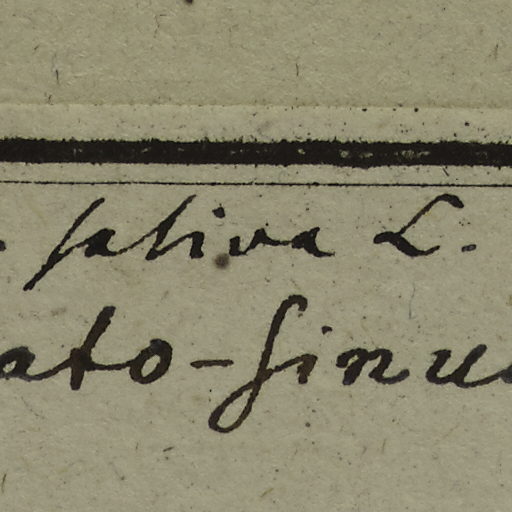 sativa L.
ato-sinu